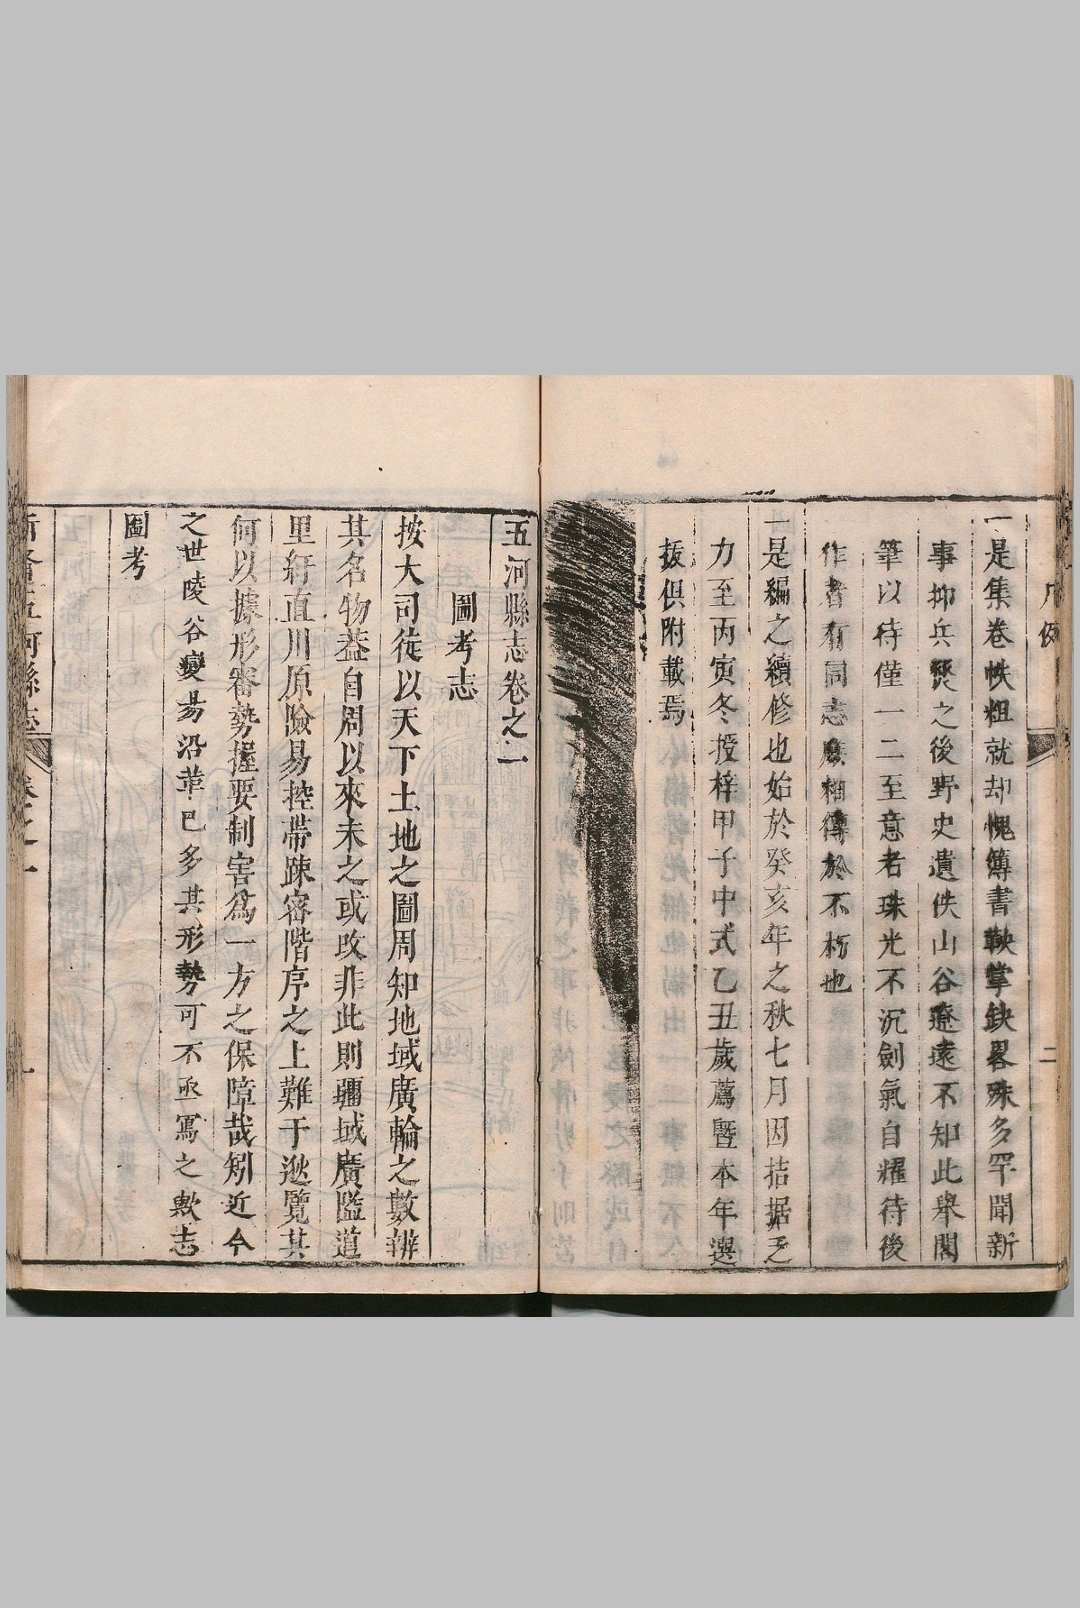 凡例
二
一是集卷帙粗就却愧簿書鞅掌鈌畧殊多罕聞新
事抑兵燹之後野史遺佚山谷遼遠不知此舉閣
筆以待僅一二至意者珠光不沉劍氣自耀待後
作者有同志廣稱傳於不朽也
一是編之續修也始於癸亥年之秋七月因拮据乏
力至丙寅冬授梓甲子中式乙丑歲薦暨本年選
拔俱附載焉
五河縣志卷之一
圖考志
按大司徒以天下土地之圖周知地域廣輪之數辨
其名物葢自周以來未之或改非此則疆域廣隘道
里紆直川原險易控帶踈密階序之上難于遂覽其
何以據形審勢握要制害爲一方之保障哉矧近今
之世陵谷變易沿革巳多其形勢可不亟寫之歟志
圖考
五河縣志
卷之一
一